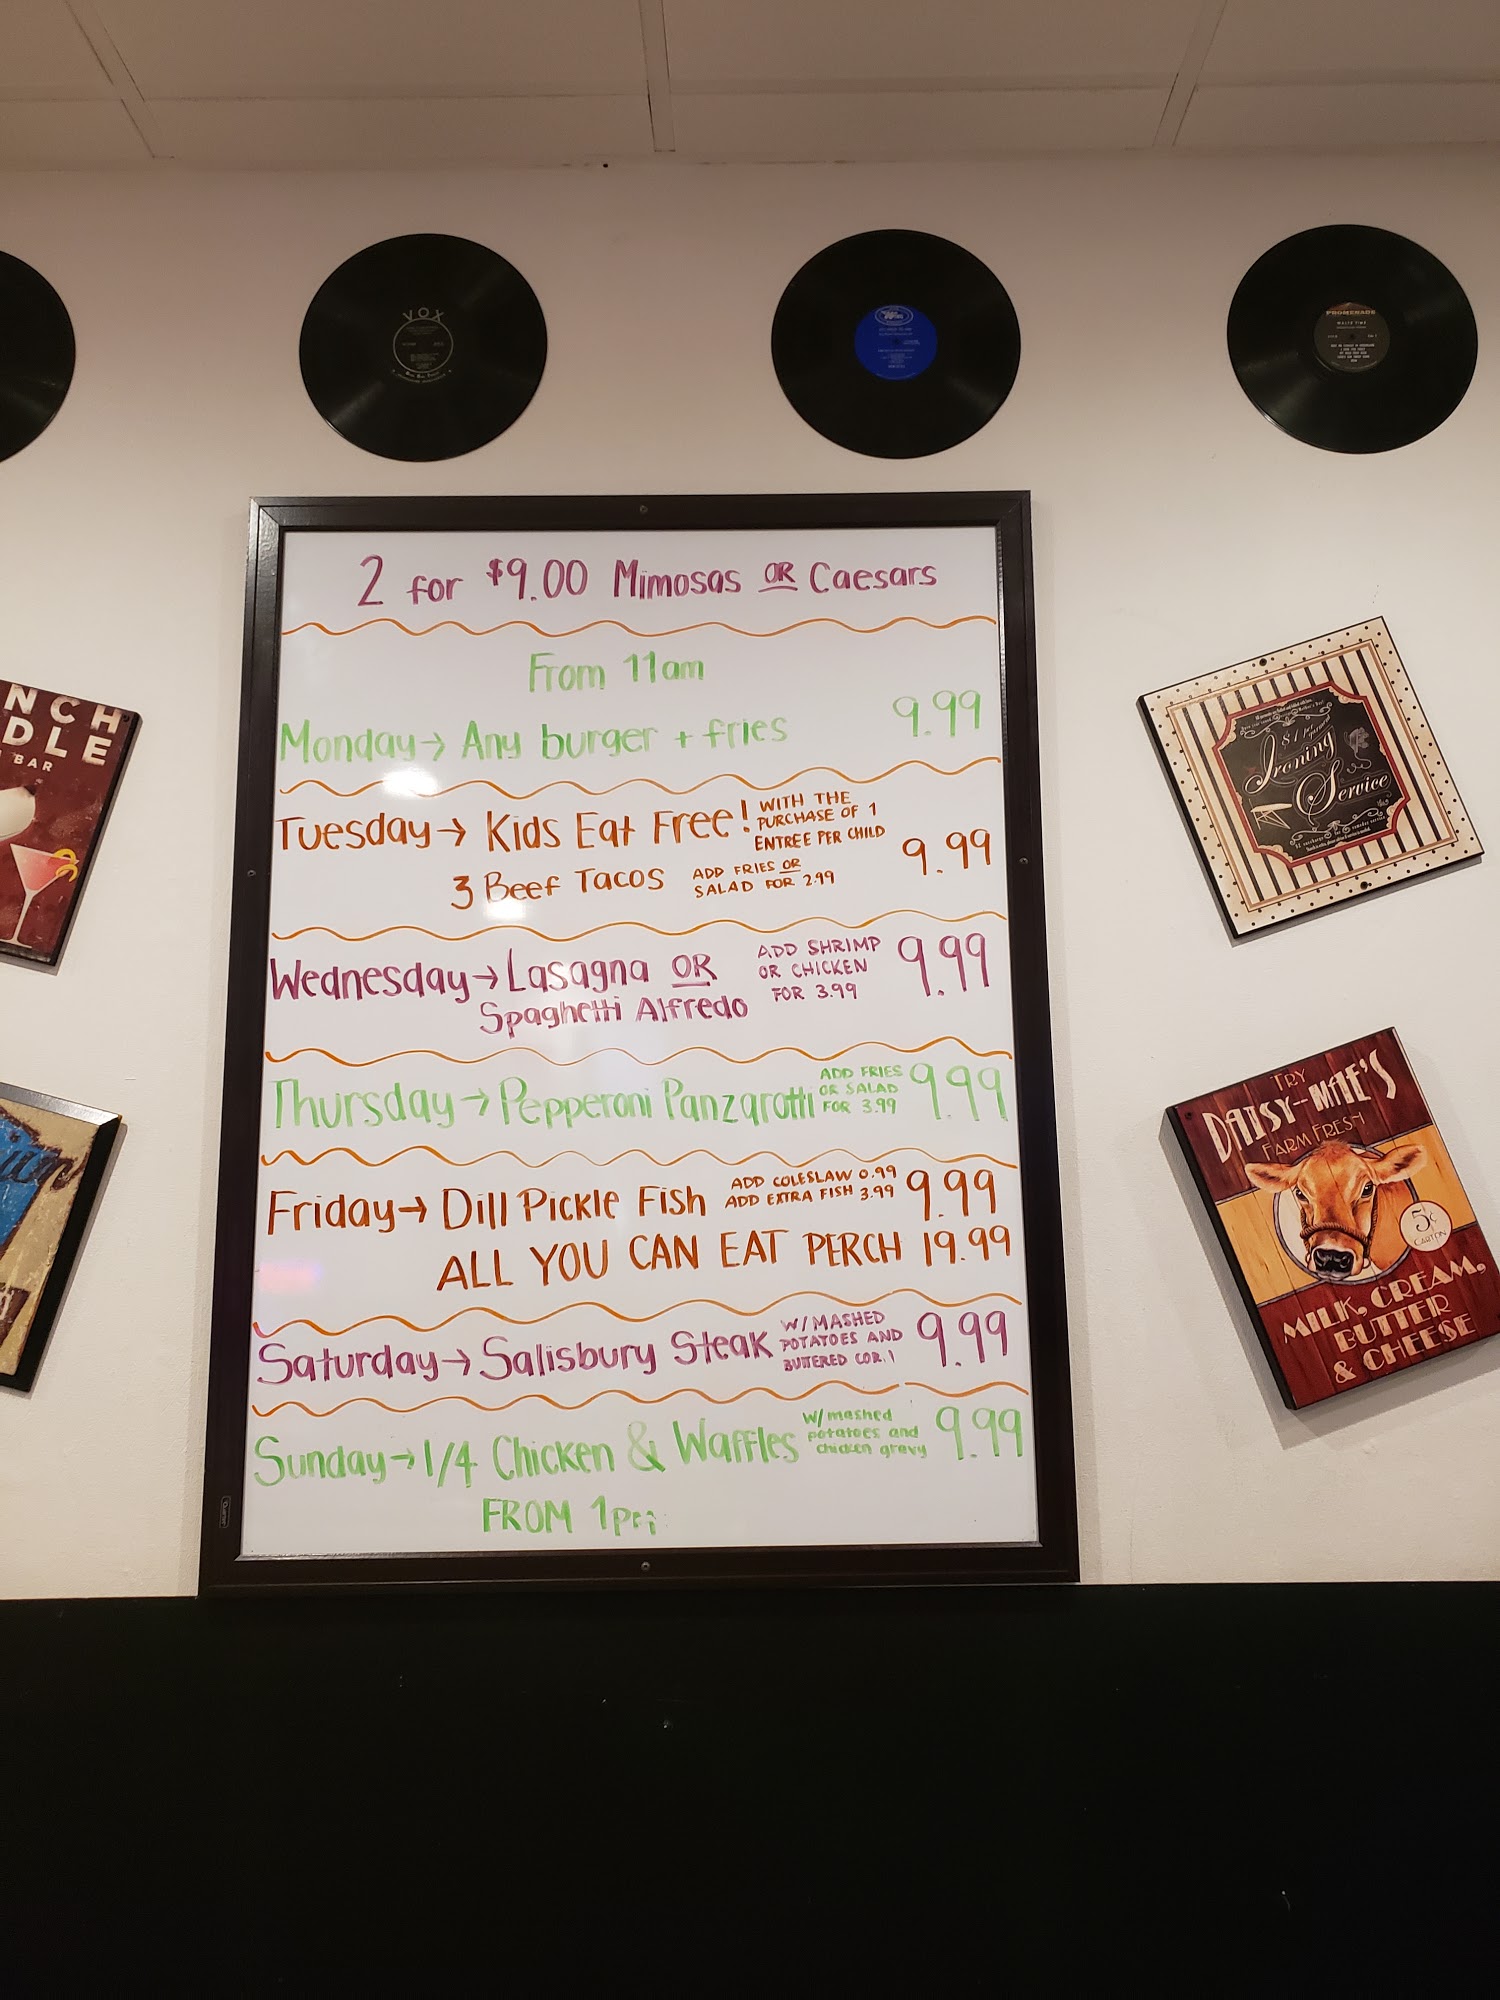 VOX
PROMENADE
WALTZ TIME
2 for $9.00 Mimosas OR Caesars
From 11am
Monday → Any burger + fries 9.99
Tuesday → Kids Eat Free! WITH THE
PURCHASE OF 1
ENTREE PER CHILD
9.99
3 Beef Tacos ADD FRIES OR
SALAD FOR 2.99
Wednesday → Lasagna OR
Spaghetti Alfredo
ADD SHRIMP
OR CHICKEN
FOR 3.99
9.99
Thursday → Pepperoni Panzarotti
ADD FRIES
OR SALAD
FOR 3.99
9.99
Friday → Dill Pickle Fish
ADD COLESLAW 0.99
ADD EXTRA FISH 3.99
9.99
ALL YOU CAN EAT PERCH 19.99
Saturday → Salisbury Steak
W/ MASHED
POTATOES AND
BUTTERED
9.99
Sunday → 1/4 Chicken & Waffles
w/ mashed
potatoes and
chicken gravy
9.99
FROM 1pm
NCH
DLE
BAR
$1 per
Ironing
Service
TRY
DAISY-MAE'S
FARM FRESH
5¢
CARTON
MILK, CREAM,
BUTTER
& CHEESE